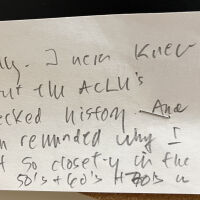 ly. I never knew
ut the ACLU's
ecked history. And
m reminded why I
t so closety in the
50's + 60's